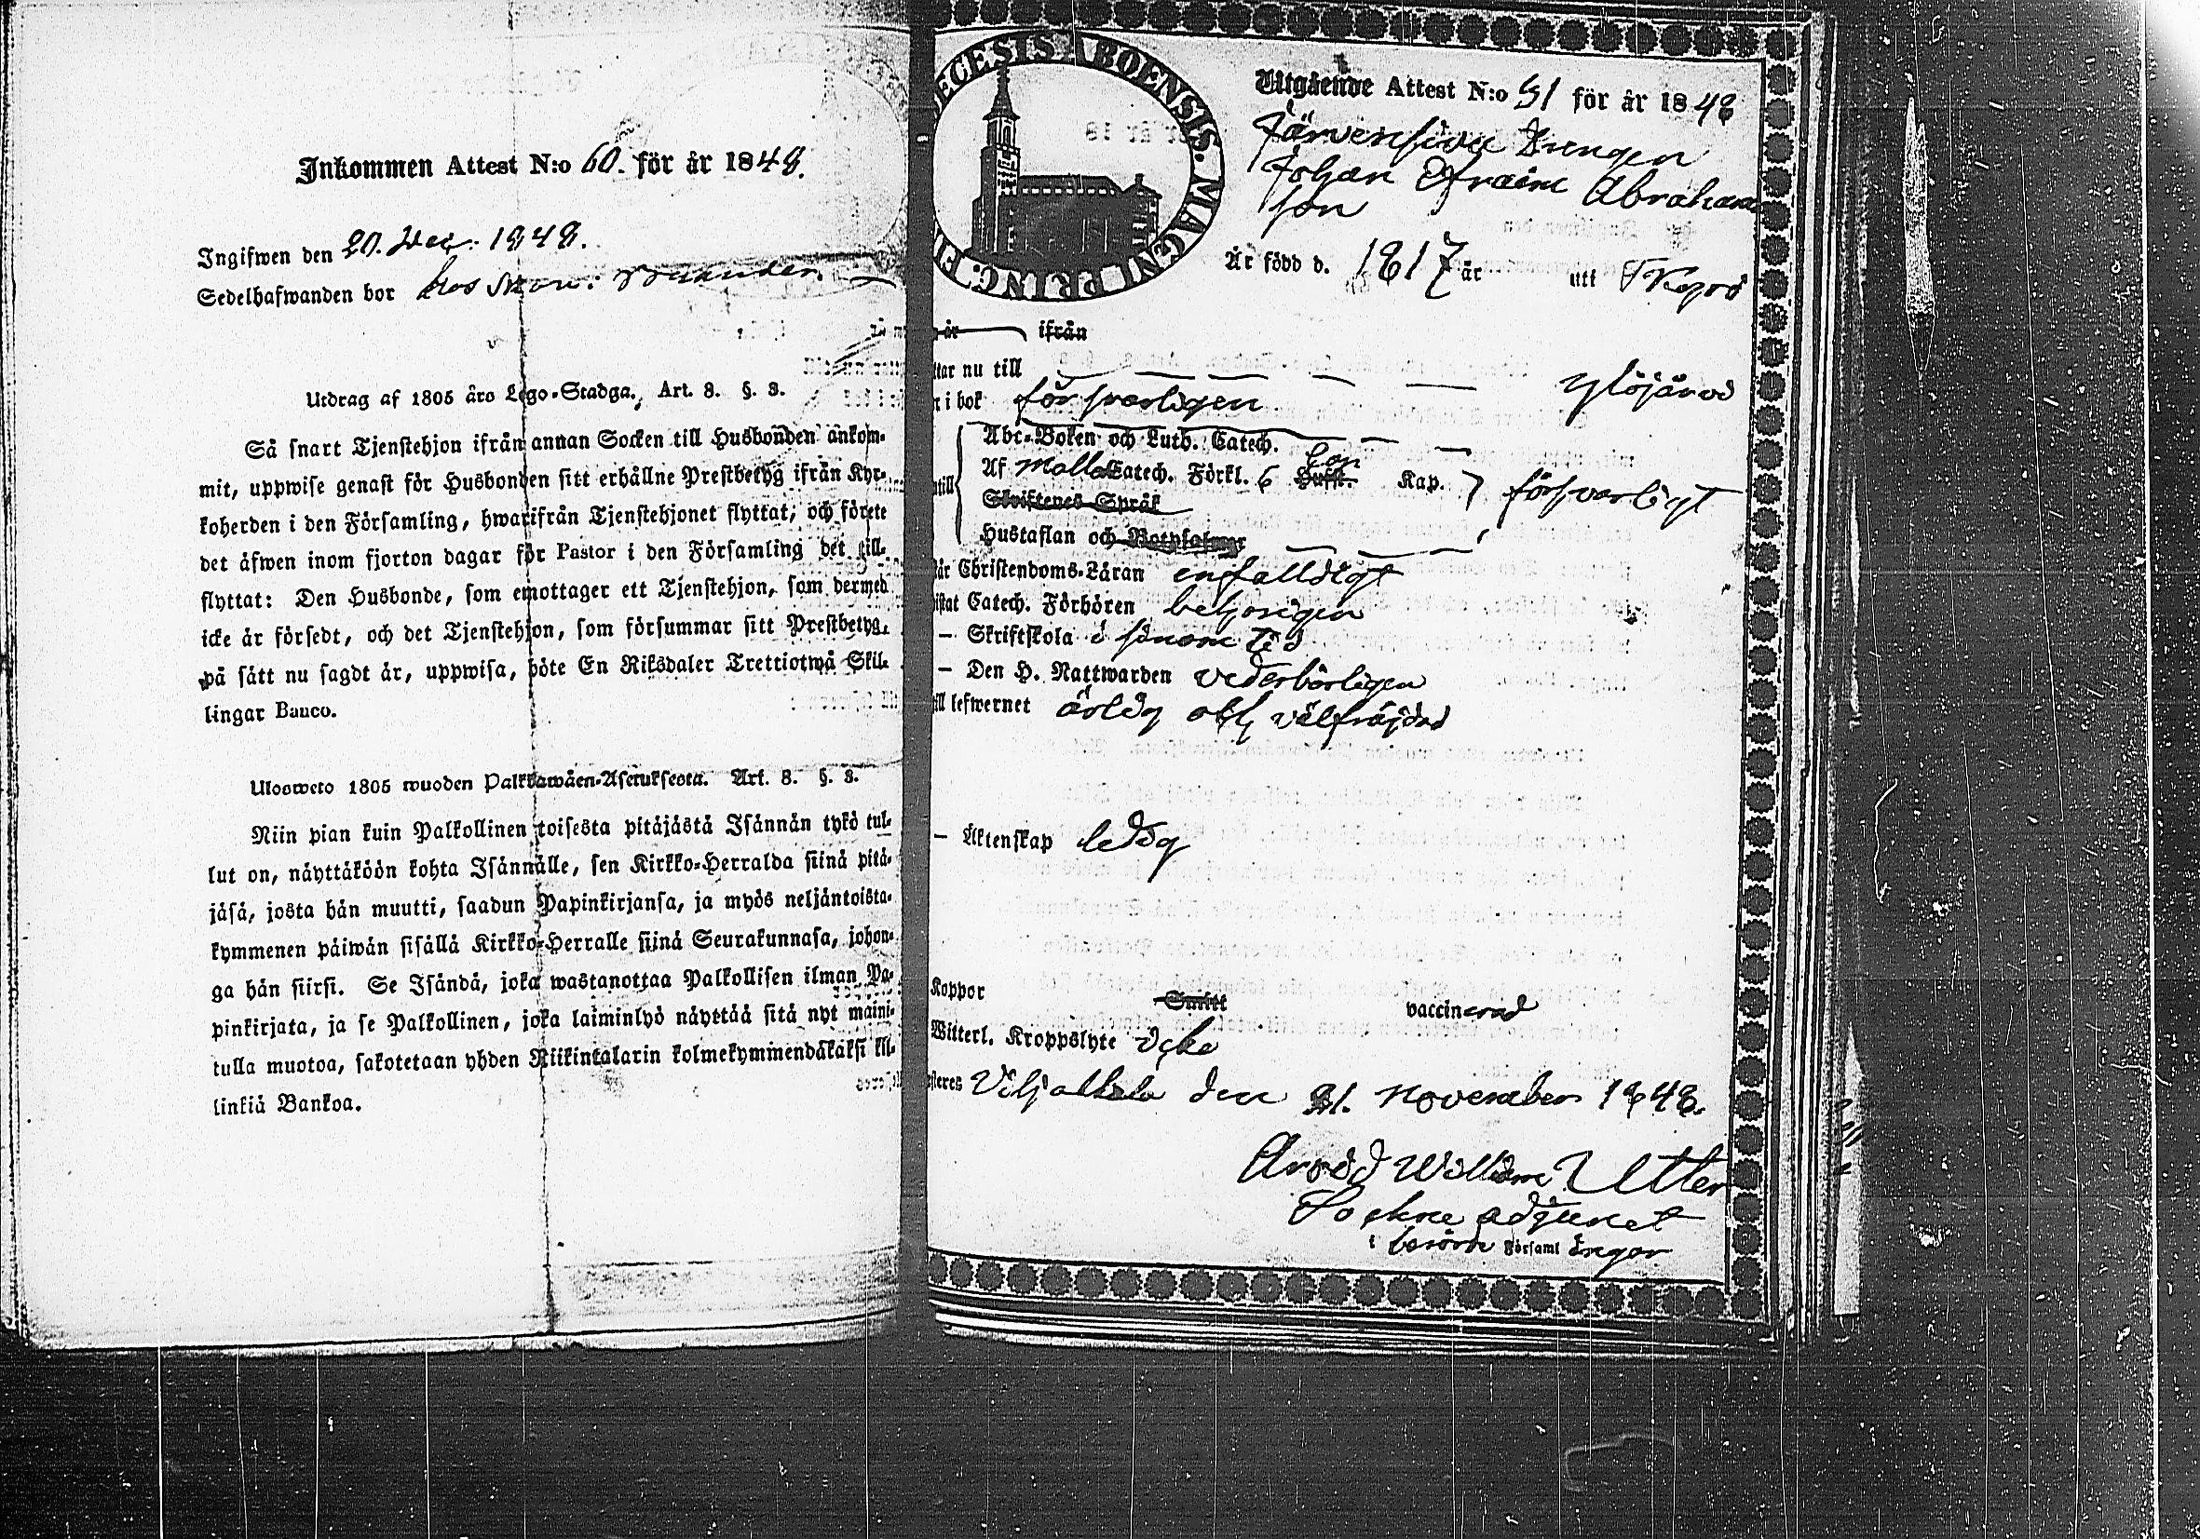 Inkommen Attest N:o 60. för år 1848.
Ingifwen den 20. Dec. 1848.
Sedelhafwanden bor hos
Utdrag af 1805 års Lego-Stadga. Art. 8. §. 3.
Så snart Tjenstehjon ifrån annan Socken till Husbonden ankom-
mit, uppwise genast för Husbonden sitt erhållne Prestbetyg ifrån Kyr-
koherden i den Församling, hwarifrån Tjenstehjonet flyttat, och förete
det äfwen inom fjorton dagar för Pastor i den Församling det till-
flyttat: Den Husbonde, som emottager ett Tjenstehjon, som dermed
icke är försedt, och det Tjenstehjon, som försummar sitt Prestbetyg,
på sätt nu sagdt är, uppwisa, böte En Riksdaler Trettiotwå Skil-
lingar Banco.
Ulosweto 1805 wuoden Palkkawäen-Asetuksesta. Art. 8. §. 3.
Niin pian kuin Palkollinen toisesta pitäjästä Isännän tykö tul-
lut on, näyttäköön kohta Isännälle, sen Kirkko-Herralda siinä pitä-
jäsä, josta hän muutti, saadun Papinkirjansa, ja myös neljäntoista-
kymmenen päiwän sisällä Kirkko-Herralle siinä Seurakunnasa, johon-
ga hän siirsi. Se Isändä, joka wastanottaa Palkollisen ilman Pa-
pinkirjata, ja se Palkollinen, joka laiminlyö näyttää sitä nyt maini-
tulla muotoa, sakotetaan yhden Riikintalarin kolmekymmendäkaksi kil-
linkiä Bankoa.
ECESIS ABOENSIS. MAGNI PRINC. FI
Utgående Attest N:o 51 för år 1848
Järvensivu Drengen
Johan Efraim Abraham
son
Är född d. 1817 år utt TKyrö
år ifrån
ttar nu till Ylöjärvi
i bok försvarligen
Abc-Boken och Luth. Catech.
Af Mall. Catech. Förkl. 6 Hufst. Kap. försvarligt
Skriftenes Språk
Hustaflan och Botpsalmer
år Christendoms-Läran enfalldigt
istat Catech. Förhören behörigen
— Skriftskola i sinom tid
— Den H. Nattwarden vederbörligen
ill lefwernet ärlig och välfräjdad
— Äktenskap ledig
Koppor Smitt vaccinerad
Witterl. Kroppslyte icke
steres Viljakkala den 21. November 1848.
Arvid Willium Utter
Sockne adjunct
i berörde Församl ingar